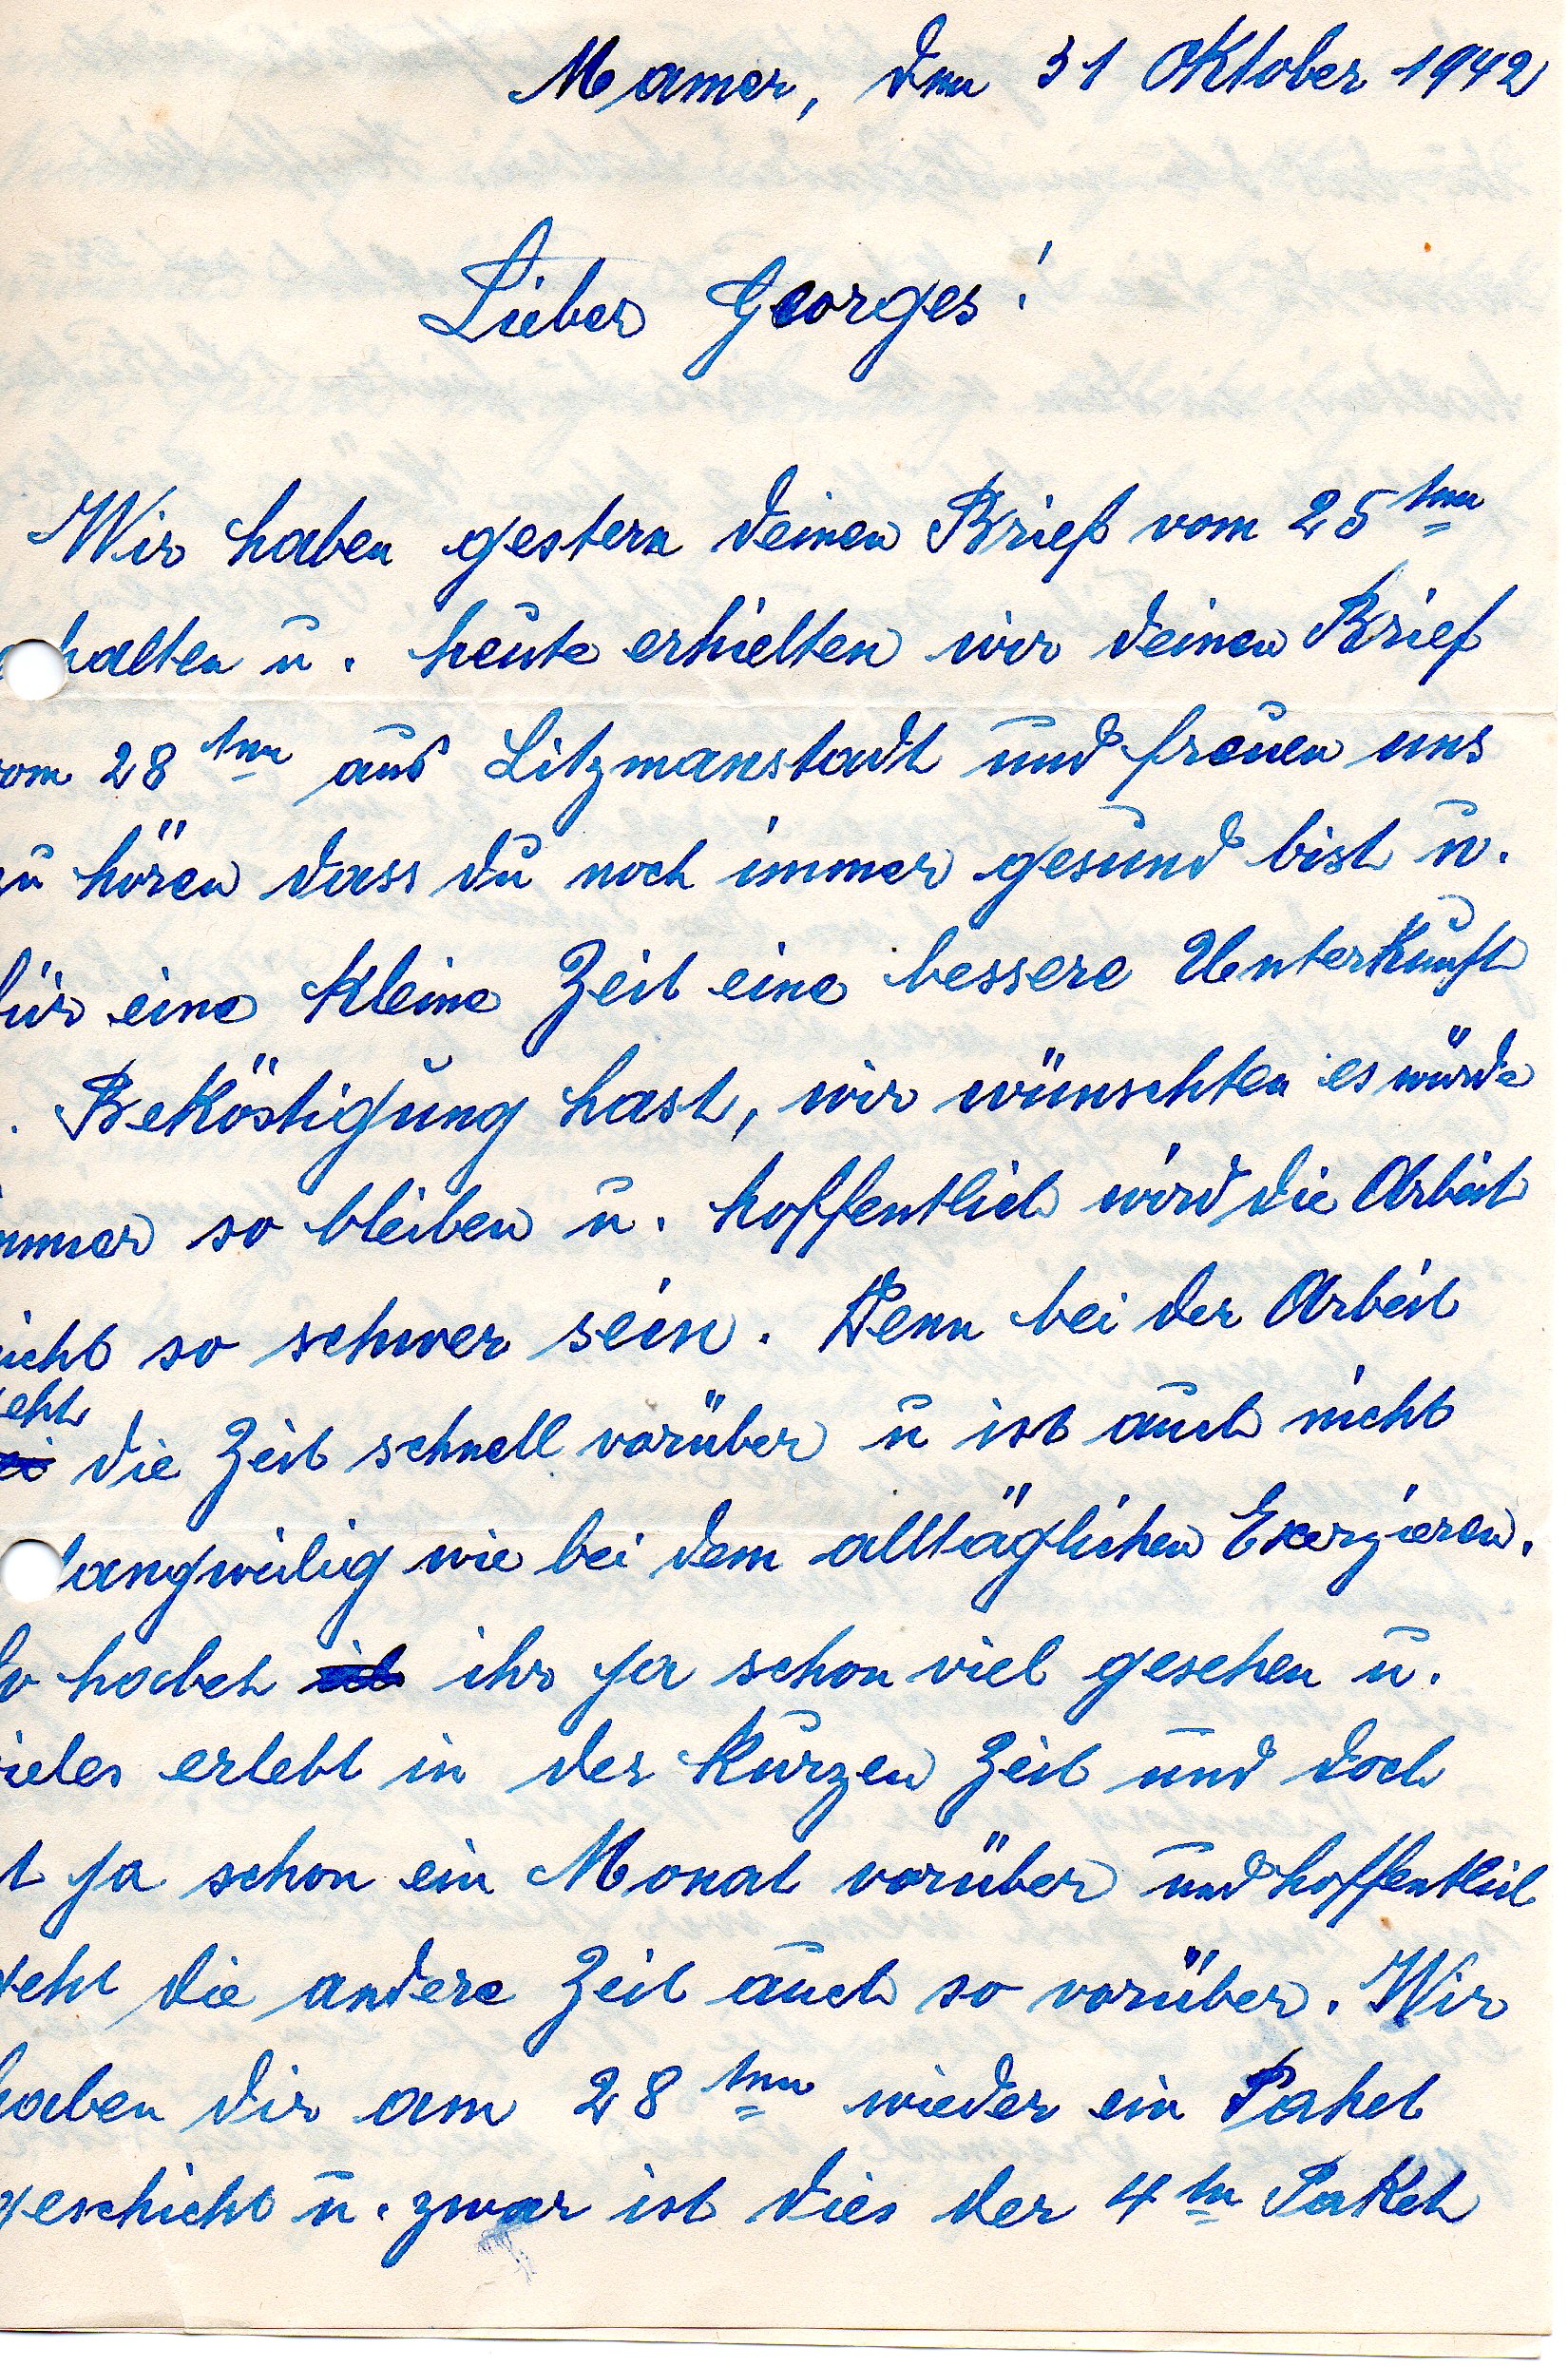 Mamer, den 31 Oktober 1942
Lieber Georges!
Wir haben gestern deinen Brief vom 25 ten
erhalten u. heute erhielten wir deinen Brief
vom 28 ten aus Litzmanstadt und freuen uns
zu hören dass du noch immer gesund bist u.
für eine kleine Zeit eine bessere Unterkunft
. Beköstigung hast, wir wünschten es würde
immer so bleiben u. hoffentlich wird die Arbeit
nicht so schwer sein. Denn bei der Arbeit
geht
die Zeit schnell vorüber u ist auch nicht
langweilig wie bei dem alltäglichen Exerzieren.
So habet ihr ja schon viel gesehen u.
vieles erlebt in der kurzen Zeit und doch
ist ja schon ein Monat vorüber und hoffentlich
geht die andere Zeit auch so vorüber. Wir
haben dir am 28 ten wieder ein Paket
geschickt u. zwar ist dies der 4 te Paket